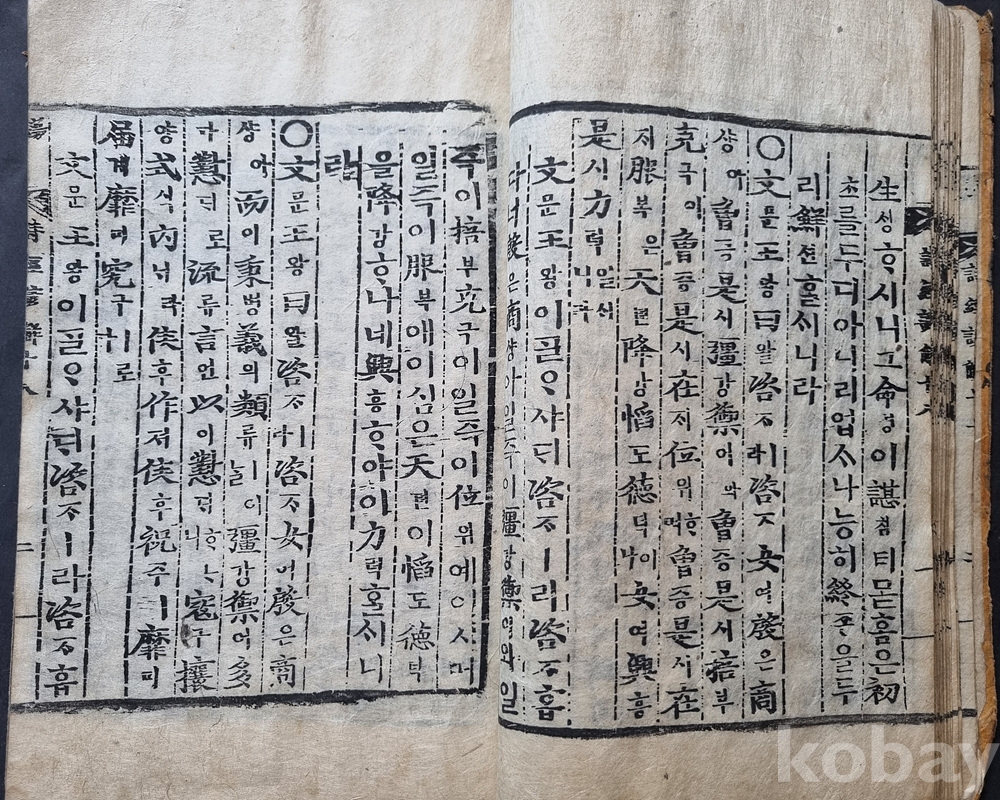 生ᄉᆡᆼᄒᆞ시니그命명이諶침티몯홈은初
초를두디아니리업스나능히終죵을두
리鮮션ᄒᆞᆯᄉᆡ니라
○文문王왕曰왈咨ᄌᆞㅣ라咨ᄌᆞ女여殷은商
샹아曾증是시彊강禦어와曾증是시掊부
克극이曾증是시在ᄌᆡ位위ᄒᆞ며曾증是시在
ᄌᆡ服복은天텬降강慆도德덕이나女여興흥
是시力력일ᄉᆡ니라
文문王왕이ᄀᆞᆯᄋᆞ샤ᄃᆡ咨ᄌᆞㅣ라咨ᄌᆞ흡
다너殷은商샹아일즉이彊강禦어와일
즉이掊부克극이일즉이位위예이시며
일즉이服복애이심은天텬이慆도德덕
을降강ᄒᆞ나네興흥ᄒᆞ야이力력ᄒᆞᆯᄉᆡ니
라
○文문王왕曰왈咨ᄌᆞㅣ라咨ᄌᆞ女여殷은商
샹아而이秉병義의類류ㅣ늘彊강禦어多
다懟ᄃᆡ로流류言언以이懟ᄃᆡᄒᆞᄂᆞ니寇구攘
양式식內ᄂᆡ라侯후作저侯후祝주ㅣ靡미
届계靡미究구ㅣ로
文문王왕이ᄀᆞᆯᄋᆞ샤ᄃᆡ咨ᄌᆞㅣ라咨ᄌᆞ흡
kobay